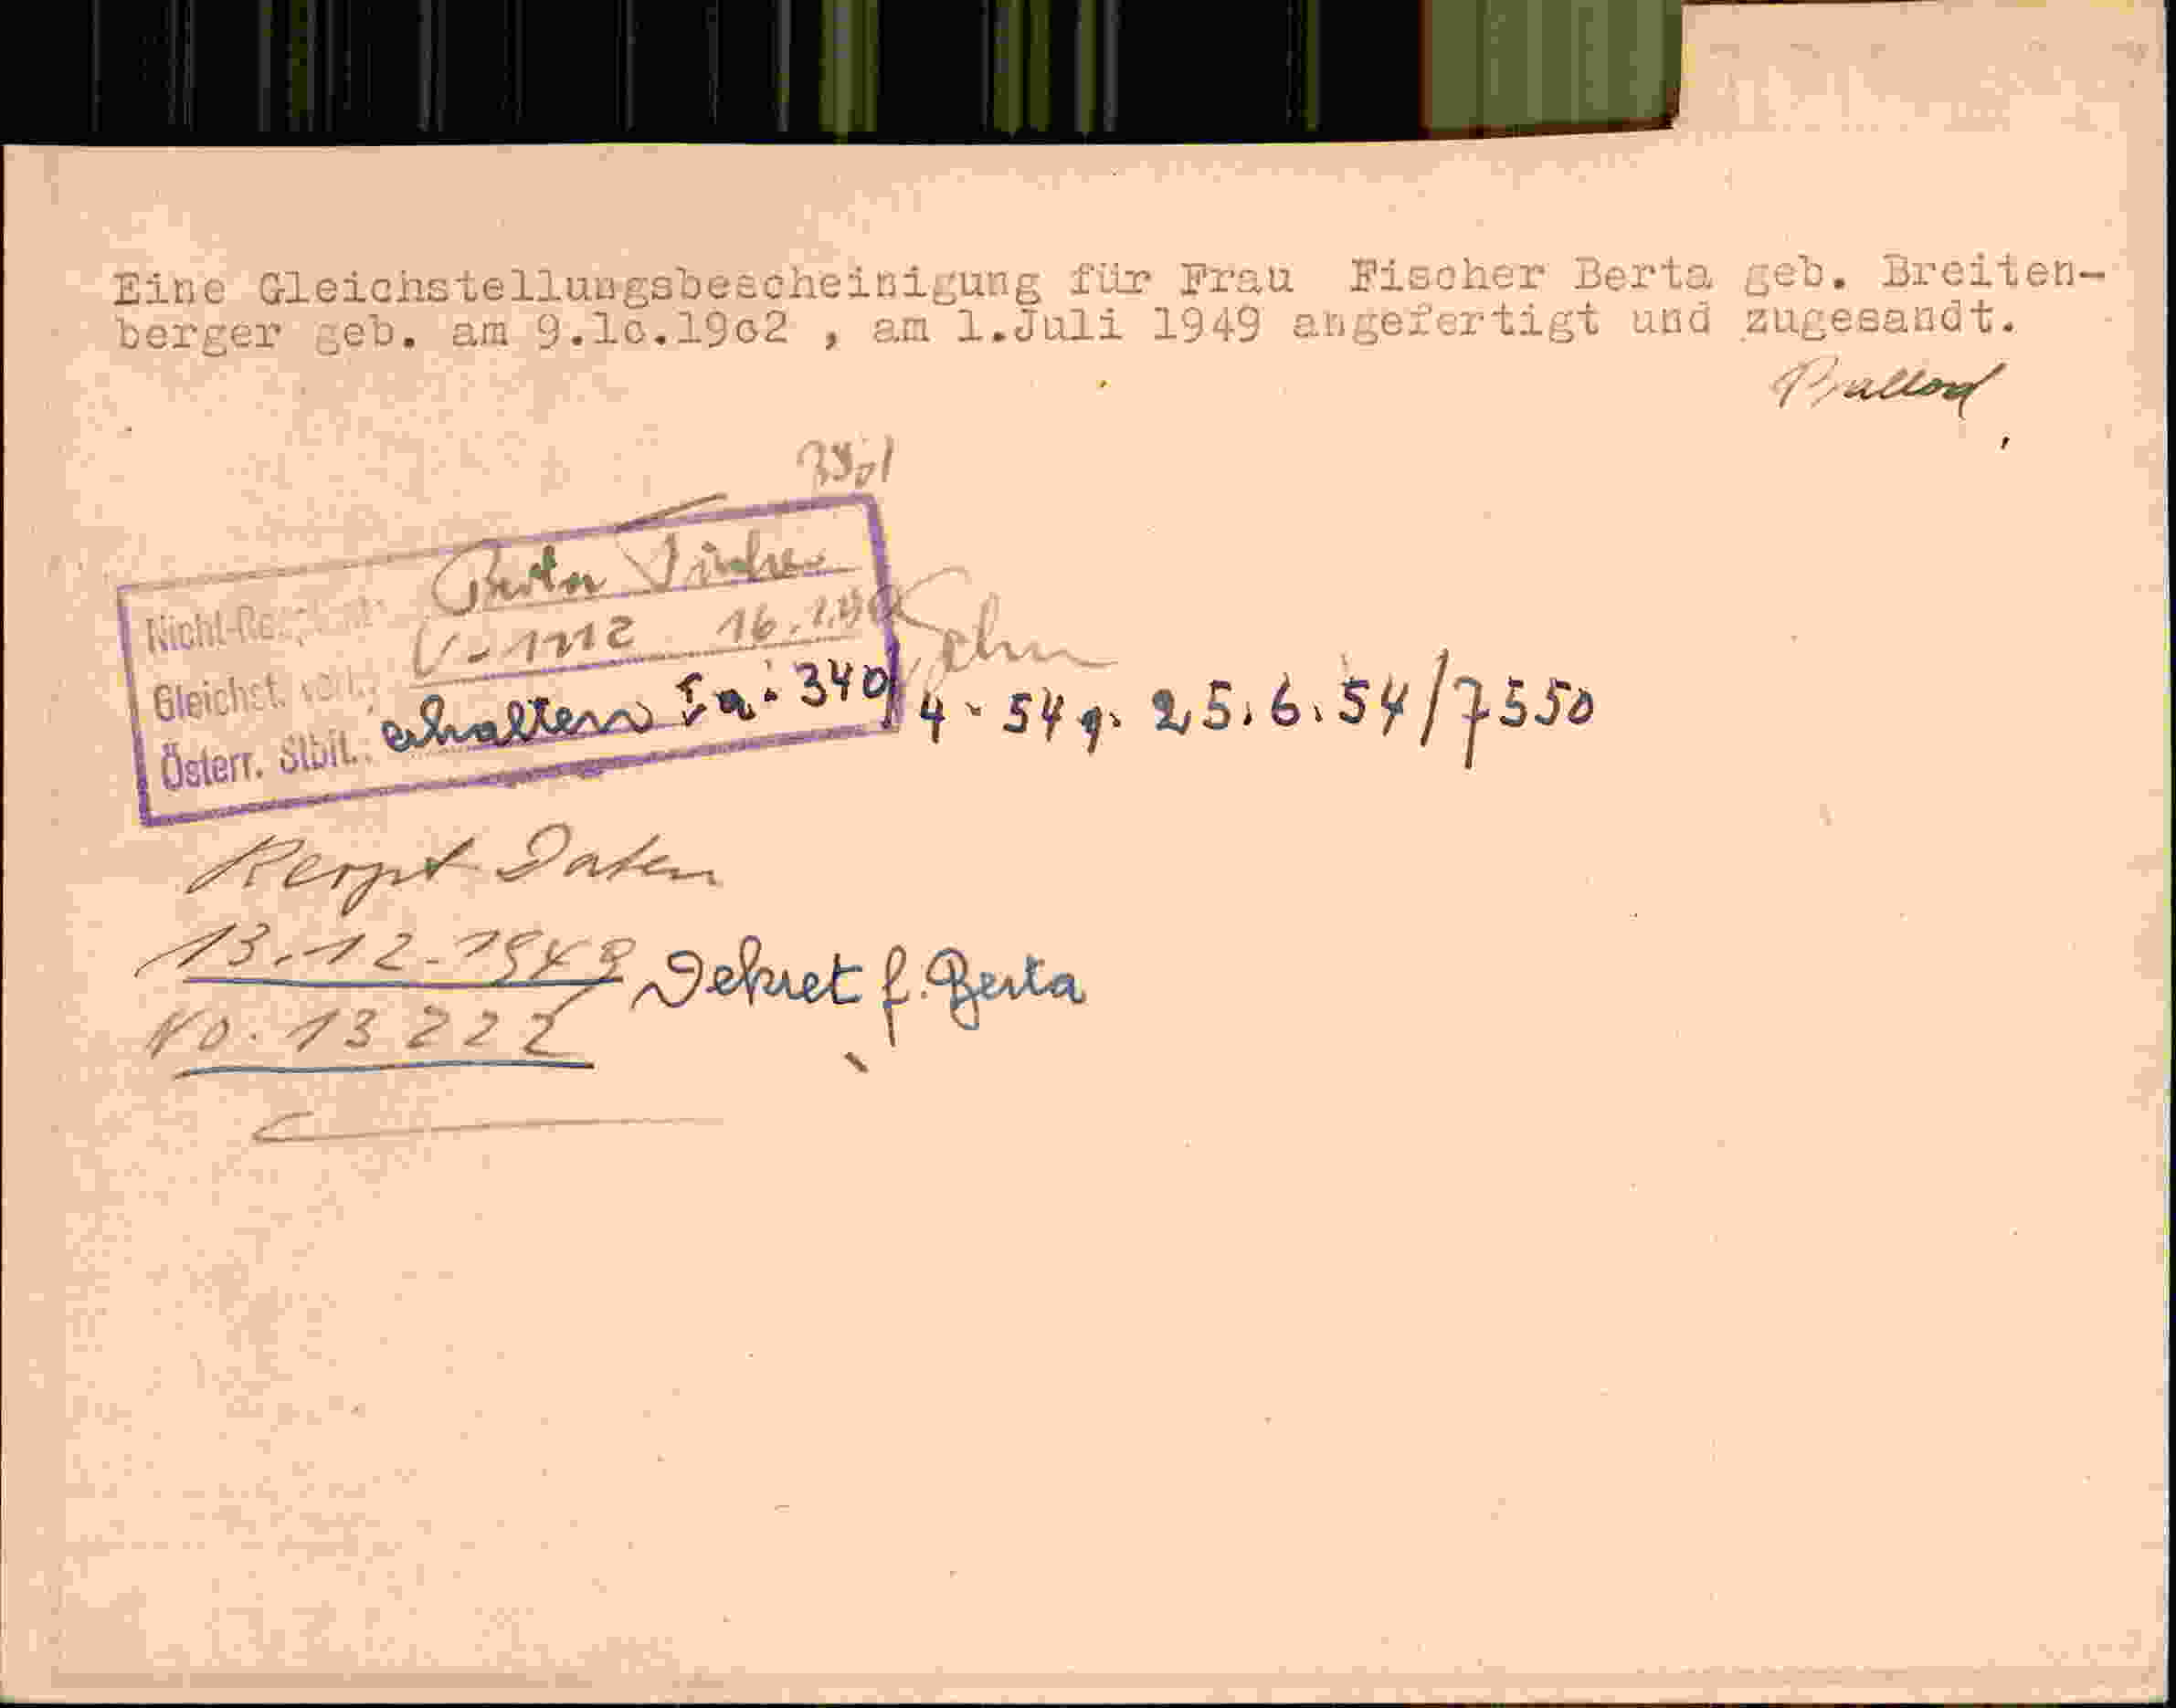 Eine Gleichstellungsbescheinigung für Frau Fischer Berta geb. Breiten-
berger geb. am 9.10.1902 , am 1.Juli 1949 angefertigt und zugesandt.
Berta Fischer
Gleichst.
16.
Österr. Stbft. erhalten Ia: 340/4 - 54 g. 25.6.54/7550
Daten
13.-12.-1949 Dekret f. Berta
No. 13222